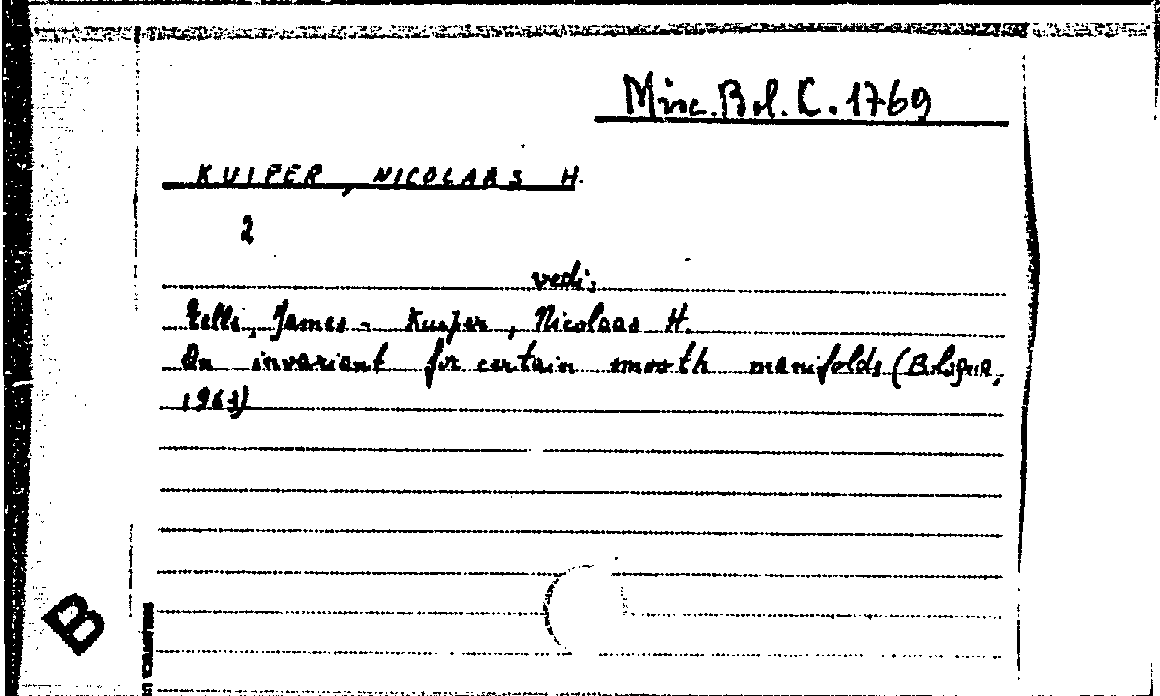 Misc. Bol. C. 1769
KUIPER, NICOLAAS H.
2
vedi:
Eells, James - Kuiper, Nicolaas H.
An invariant for certain smooth manifolds (Bologna,
1963)
B